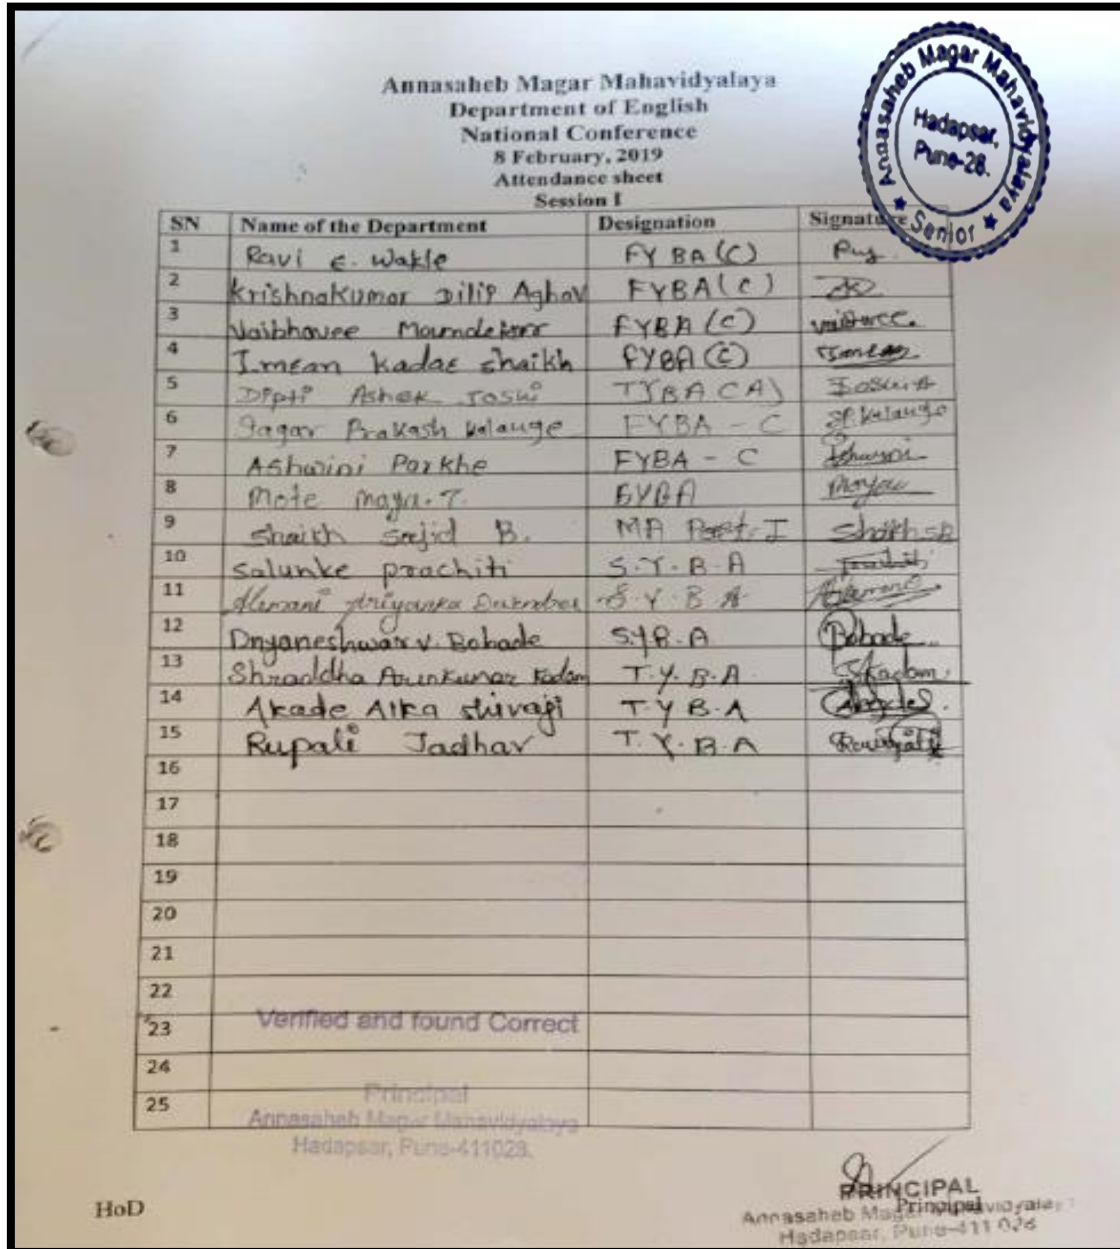 Annasaheb Magar Mahavidyalaya
Department of English
National Conference
8 February, 2019
Attendance sheet
Session I
Annasaheb Magar Mahavidyalaya
Hadapsar,
Pune-28.
★ Senior ★
SN Name of the Department Designation Signature
1 Ravi E. Wakle FYBA (C)
2 Krishnakumar Dilip Aghav FYBA (C)
3 Vaibhavee FYBA (C)
4 Imran Kadar Shaikh FYBA (C)
5 Dipti Ashok Joshi TYBA (A)
6 Sagar Prakash Kalauge FYBA - C SP. Kalauge
7 Ashwini Parkhe FYBA - C
8 Mote Maya. T. FYBA
9 Shaikh Sajid B. MA Part-I Shaikh SB
10 Salunke prachiti S.Y.B.A
11 S.Y.B.A
12 Dnyaneshwar V. Bobade S.Y.B.A Bobade
13 Shraddha Arunkumar Kadam T.Y.B.A SKadam.
14 Akade Alka Shivaji T.Y.B.A
15 Rupali Jadhav T.Y.B.A
16
17
18
19
20
21
22
23 Verified and found Correct
24
25
Principal
Annasaheb Magar Mahavidyalaya
Hadapsar, Pune-411028.
HoD
PRINCIPAL
Principal
Annasaheb Magar Mahavidyalaya
Hadapsar, Pune-411 028